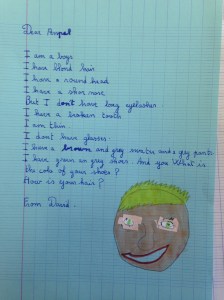 Dear
I am a boys
I have blond hair
I have a round head
I have a slim nose
But I don't have long eyelashes
I have a broken tooth
I am thin
I dont hair glasses
I have a brown and grey sweater and a grey pants
I have green an grey shoes. And you What is
the colo of your shoes?
How is your hair?
From David